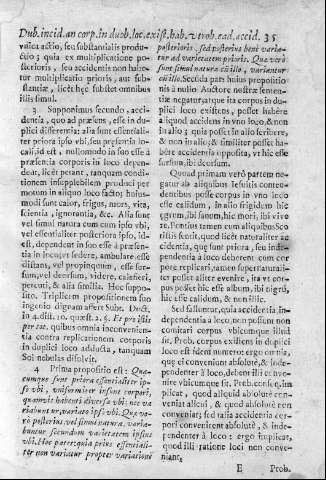 Dub. incid. an corp. in duob. loc. exist. hab. & prob. ead. accid. 35
vatica actio, seu substantialis produ-
ctio; quia ex multiplicatione po-
sterioris, seu accidentis non habe-
tur multiplicatio prioris, aut sub-
stantiæ, licet hęc subsit omnibus
illis simul.
3 Supponimus secundo, acci-
dentia, quo ad præsens, esse in du-
plici differentia: alia sunt essentiali-
ter priora ipso vbi, seu præsentia lo-
cali, id est, nullo modo in suo esse à
præsentia corporis in loco depen-
dent, licet petant, tanquam conditi-
onem
motum in aliquo loco facto; huius-
modi sunt calor, frigus, mors, vita,
scientia, ignorantia, &c. Alia sunt
vel simul natura cum cum ipso vbi,
vel essentialiter posteriora ipso, id-
est, dependent in suo esse à præsen-
tia in loco; vt sedere, ambulare, esse
distans, vel propinquum, esse sur-
sum, vel deorsum, videre, calefieri,
percuti, & alia similia. Hoc suppo-
sito. Triplicem propositionem suo
ingenio dignam affert Subt. Doct.
in 4. dist. 10. quæst. 2. §. Et pro istis
per eæ. quibus omnia inconvenien-
tia contra replicationem corporis
in duplici loco adducta, tanquam
Sol nebulas dissolvit.
4 Prima propositio est: Quæ-
cumque sunt priora essentialiter ip-
so vbi, vniformiter insunt corpori,
quamvis habenti diversa vbi: nec va-
riabuntur, variato ipso vbi. Quæ ve-
rò posterius, vel simul natura, varia-
buntur secundum varietatem ipsius
vbi. Hoc patet: quia prius essentiali-
ter non variatur propter variationē
posterioris, sed posterius bene varia-
tur ad varietatem prioris. Quæ verò
sunt simul natura cū illo, variantur
cū illo. Secunda pars huius propositio-
nis à nullo Auctore nostræ senten-
tiæ negatur, atque ita corpus in du-
plici loco existens, posset habere
aliquod accidens in vno loco, & non
in alio; quia posset in alio scribere,
& non in illo; & similiter posset ha-
bere accidentia opposita, vt hic esse
sursum, ibi deorsum.
Quoad primam verò partem ne-
gatur ab aliquibus Iesuitis conten-
dentibus posse corpus in vno loco
esse calidum, in alio frigidum hic
ęgrum, ibi sanum, hic mori, ibi vive
re. Tenitus tamen cum aliquibus Sco-
tistis facit, quod licet naturaliter ac-
cidentia, quę sunt priora, seu inde-
pendentia à loco deberent cum cor
pore replicari, tamen supernaturali-
ter posset aliter evenire, ita vt cor-
pus posset hic esse album, ibi nigrū,
hic esse calidum, & non illic.
Sed fallentur, quia accidentia in-
dependentia à loco non possunt non
comitari corpus vbicumque illud
sit. Prob. corpus existens in duplici
loco est idem numero: ergo omnia,
quę ei conveniunt absolutè, & inde-
pendenter à loco, debent illi conve-
nire vbicumque sit. Prob. conseq. im
plicat, quod aliquid absolutè con-
veniat alicui, & quod absolutè non
conveniat; sed talia accidentia cor-
pori convenirent absolutè, & inde-
pendenter à loco: ergo implicat,
quod illi ratione loci non conve-
niant,
E Prob.